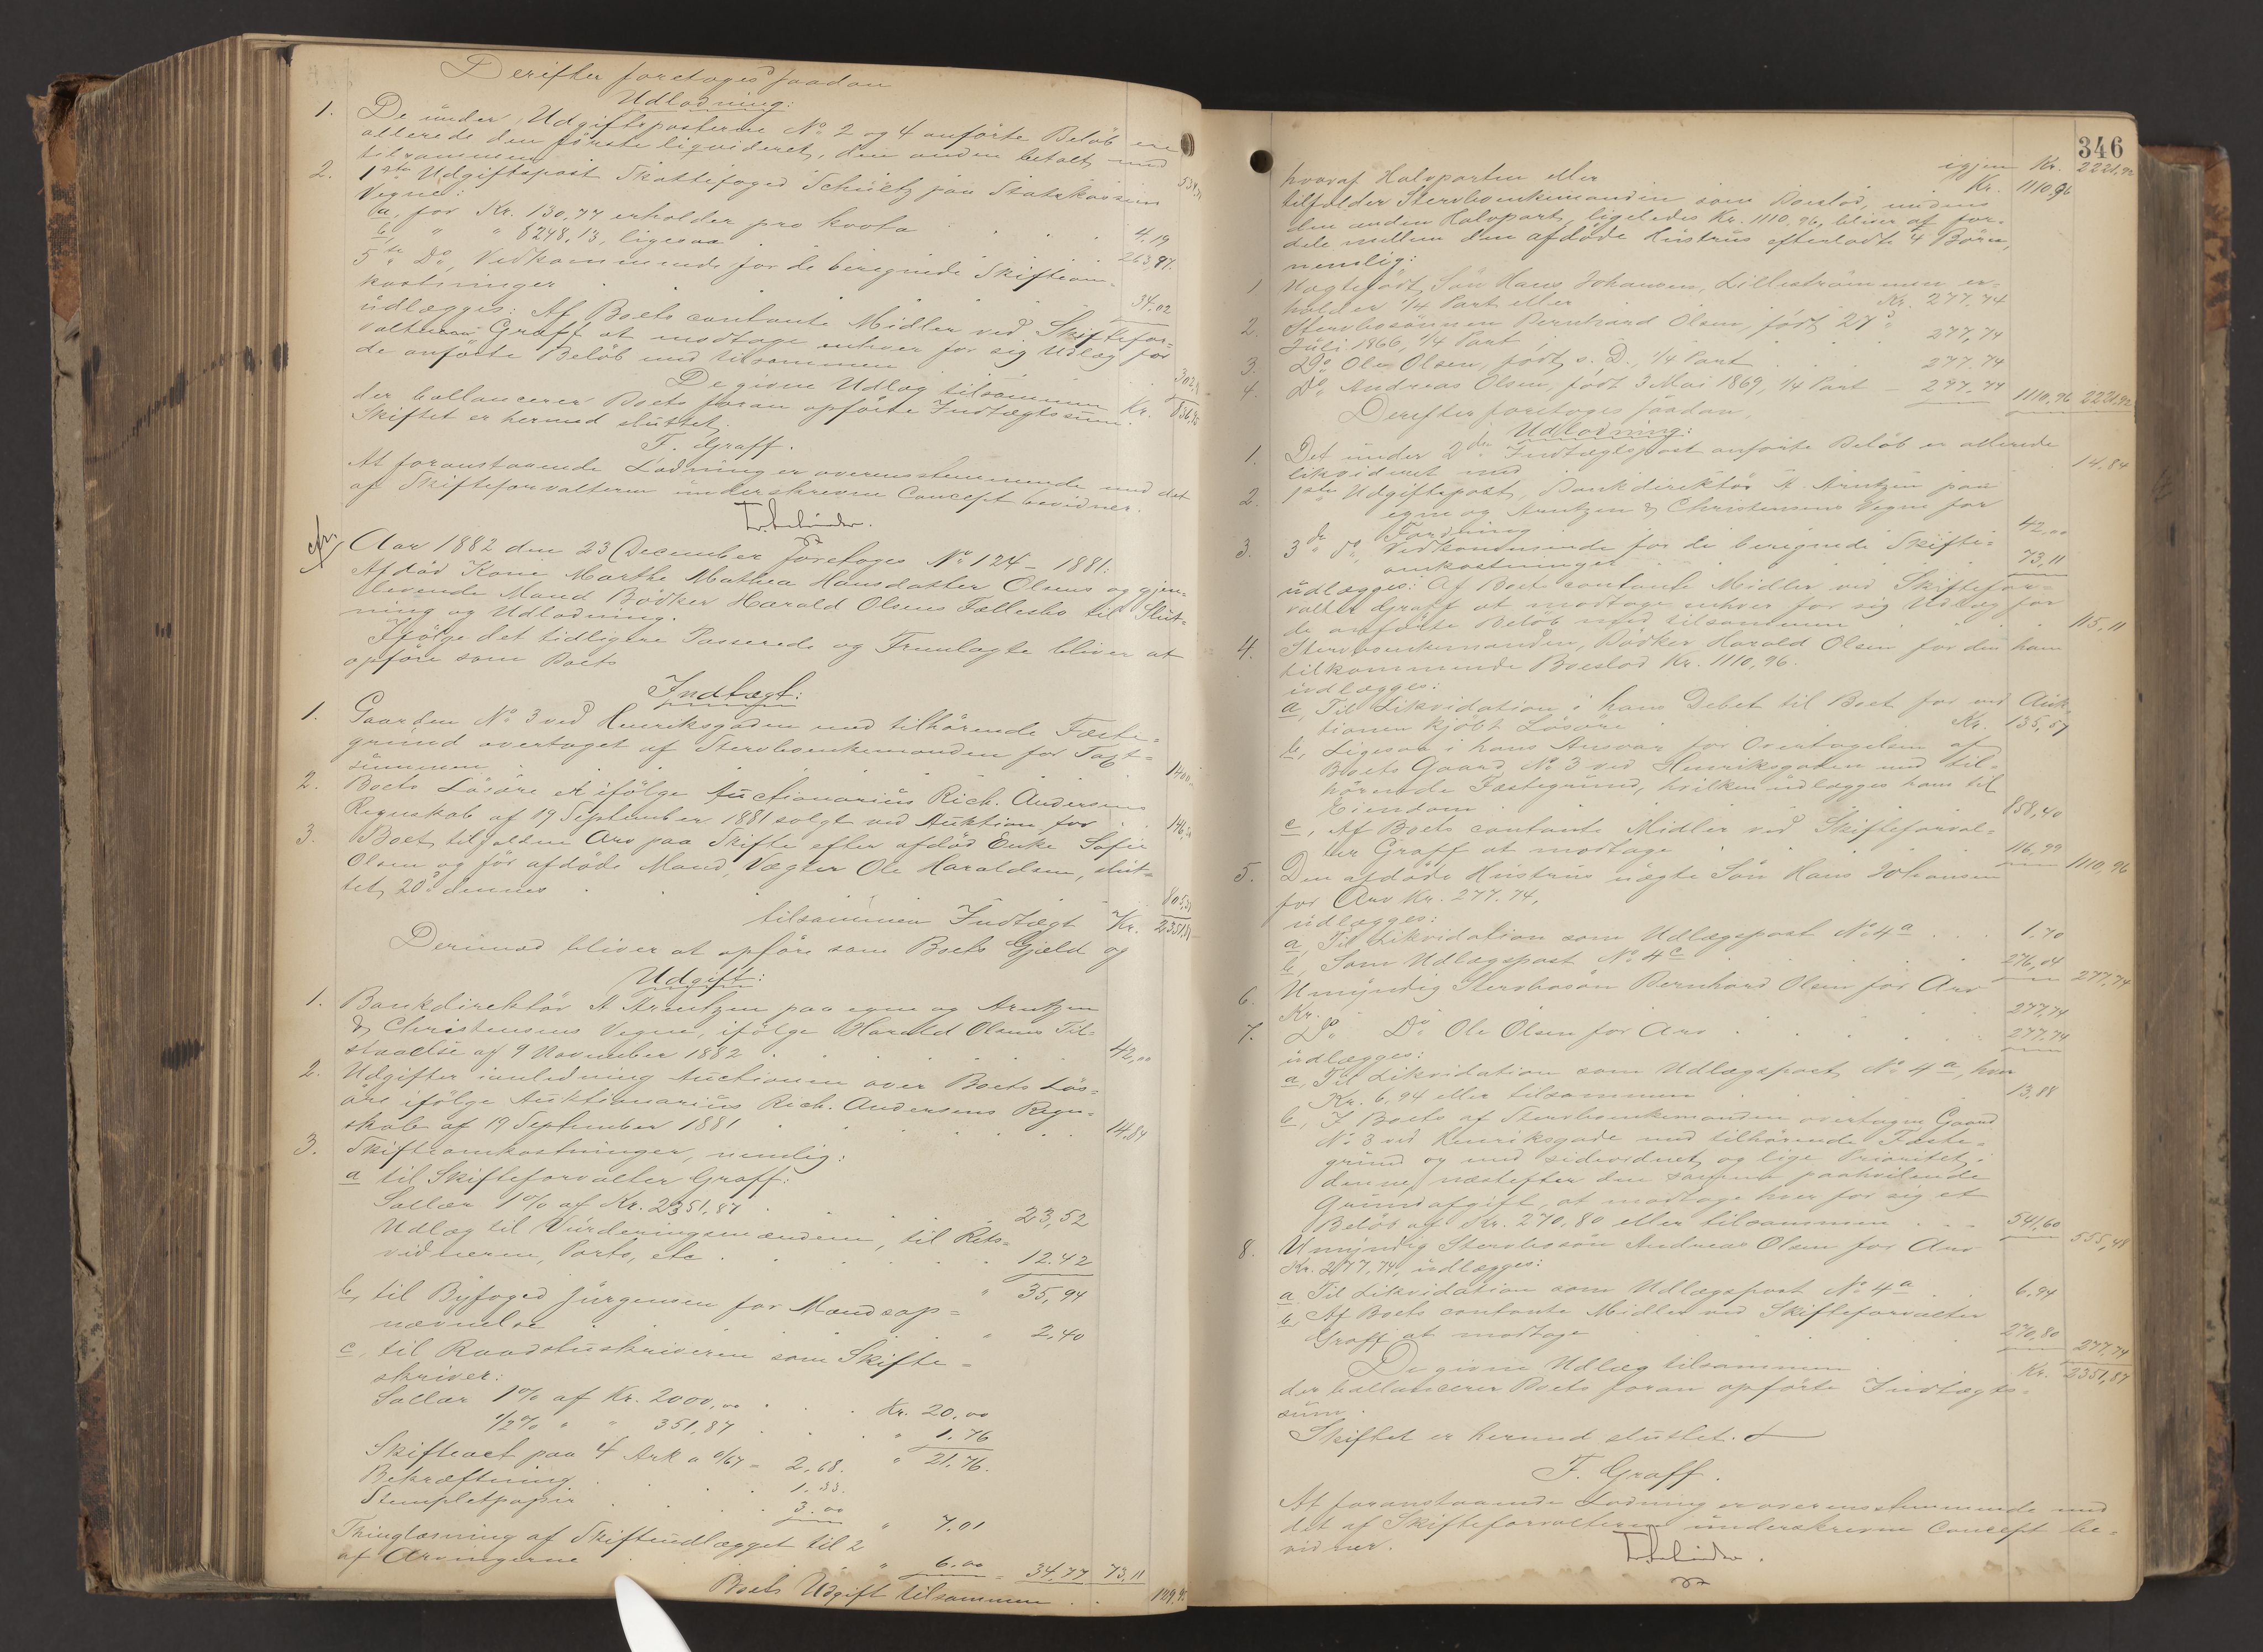 Derifter foretoges saadan
Udlodning:
1. De under Udgiftsposterne No 2 og 4 anførte Beløb ere
allerede den første liqvideret, den anden betalt med
tilsammen
2. 1ste Udgiftspost Skattefoged Schultz paa Statskassens
Vegne:
a, for Kr. 130,77 erholder pro kvota . . . 4.19
b, " " 8248,13, ligesaa . . . 263,87.
5te Do, Vedkommende for de beregnede Skifteom-
kostninger . . . 34.02
udlægges: Af Boets contante Midler ved Skiftefor-
valteren Graff at modtage enhver for sig Udlæg for
de anførte Beløb med tilsammen
De givne Udlæg tilsammen Kr.
der ballancerer Boets foran opførte Indtægtssum.
Skiftet er hermed sluttet.
F. Graff.
At foranstaaende Lodning er overensstemmende med det
af Skifteforvalteren underskrevne Concept bevidner.
Aar 1882 den 23 December foretoges No 124 - 1881:
Afdød Kone Marthe Mathea Hansdatter Olsens og gjen-
levende Mand Bødker Harald Olsens Fællesbo til Slut-
ning og Udlodning.
Ifølge det tidligere Passerede og Fremlagte bliver at
opføre som Boets
Indtægt:
1. Gaarden No 3 ved Henriksgaden med tilhørende Fæste-
grund overtaget af Stervboenkemanden for Taxt-
summen . . . 1400
2. Boets Løsøre er ifølge Auctionarius Rich. Andersens
Regnskab af 19 September 1881 solgt ved Auktion for . . 146,
3. Boet tilfalden Arv paa Skifte efter afdød Enke Sofie
Olsen og før afdøde Mand, Vægter Ole Haraldsen, slut-
tet 20de dennes . . . 805,
tilsammen Indtægt Kr. 2351,87
Derimod bliver at opføre som Boets Gjæld og
Udgift:
1. Bankdirektør A Arentzen paa egne og Arntzen
& Christensens Vegne, ifølge Harald Olsens Til-
staaelse af 9 November 1882 . . . 42,00
2. Udgifter i anledning Auctionen over Boets Løs-
øre ifølge Auktionarius Rich. Andersens Regn-
skab af 19 September 1881 . . . 14,84
3. Skifteomkostninger, nemlig:
a til Skifteforvalter Graff:
Sallær 1% af Kr. 2351.87 . . . 23,52
Udlæg til Vurderingsmændene, til Rets-
vidnerne, Porto, etc . . . 12.42
" 35,94
b, til Byfoged Jürgensen for Mændsop-
nævnelse . . . " 2,40
c, til Raadstuskriveren som Skifte-
skriver:
Sallær 1% af Kr. 2000,00 . . . Kr. 20,00
1/2% " " 351,87 . . . " 1.76
" 21,76.
Skifteact paa 4 Ark a 0/67 = 2,68.
Bekræftning . . . 1.33.
Stempletpapir . . . 3.00
" 7,01
Thinglæsning af Skifteudlægget til 2
af Arvingerne . . . " 6.00 = 34,77 73,11
Boets Udgift tilsammen . .
346
igjen Kr. 2221,92
hvoraf Halvparten eller Kr. 1110,96
tilfalder Stervboenkemanden som Boeslod, medens
den anden Halvpart, ligeledes Kr. 1110.96, bliver at for-
dele mellem den afdøde Hustrus efterladte 4 Børn,
nemlig:
1 Uægtefødt Søn Hans Johansen, Lillestrømmen er-
holder 1/4 Part eller Kr. 277.74
2. Stervbosønnen Bernhard Olsen, født 27de
Juli 1866, 1/4 Part . . . 277,74
3. Do Ole Olsen, født s. D., 1/4 Part . . . 277.74
4. Do, Andreas Olsen, født 3 Mai 1869, 1/4 Part 277.74 1110,96 2221,92
Derefter foretoges saadan
Udlodning:
1. Det under 2den Indtægtspost anførte Beløb er allerede
likvideret med . . . 14.84
2. 1ste Udgiftspost, Bankdirektør A. Arntzen paa
egne og Arntzen & Christensens Vegne for
Fordring . . . 42,00
3. 3de Do, Vedkommende for de beregnede Skifte-
omkostninger . . . 73,11
udlægges: Af Boets contante Midler ved Skiftefor-
valter Graff at modtage enhver for sig Udlæg for
de anførte Beløb med tilsammen . . . 115,11
4. Stervboenkemanden, Bødker Harald Olsen for den ham
tilkommende Boeslod Kr. 1110,96.
udlægges:
a, Til Likvidation i hans Debet til Boet for ved Auk-
tionen kjøbt Løsøre . . . Kr. 135,57
b, Ligesaa i hans Ansvar for Overtagelsen af
Boets Gaard No 3 ved Henriksgaden med til-
hørende Fæstegrund, hvilken udlægges ham til
Eiendom . . . 858,40
c, Af Boets contante Midler ved Skifteforval-
ter Graff at modtage . . . 116,99 1110,96
5. Den afdøde Hustrus uægte Søn Hans Johansen
for Arv Kr. 277.74,
udlægges:
a, Til Likvidation som Udlægspost No 4a . . . 1.70
b, Som Udlægspost No 4c . . . 276,04 277,74
6. Umyndig Stervbosøn Bernhard Olsen for Arv
Kr. . . . 277,74
7. Do Do Ole Olsen for Arv . . . 277.74
udlægges:
a, Til Likvidation som Udlægspost No 4a, hver
Kr. 6,94 eller tilsammen . . . 13,88
b, I Boets af Stervboenkemanden overtagne Gaard
No 3 ved Henriksgade med tilhørende Fæste-
grund og med sideordnet og lige Prioritet i
denne, næstefter den samme paahvilende
Grundafgift, at modtage hver for sig et
Beløb af Kr. 270.80 eller tilsammen . . . 541,60 555,48
8. Umyndig Stervbosøn Andreas Olsen for Arv
Kr. 277,74, udlægges:
a Til Likvidation som Udlægspost No 4a . . 6,94
b, Af Boets contante Midler ved Skifteforvalter
Graff at modtage . . . 270,80 277,74
De givne Udlæg tilsammen . . . Kr. 2351,87
der ballancerer Boets foran opførte Indtægts-
sum.
Skiftet er hermed sluttet.
F. Graff.
At foranstaaende Lodning er overensstemmende med
det af Skifteforvalteren underskrevne Concept be-
vidner.